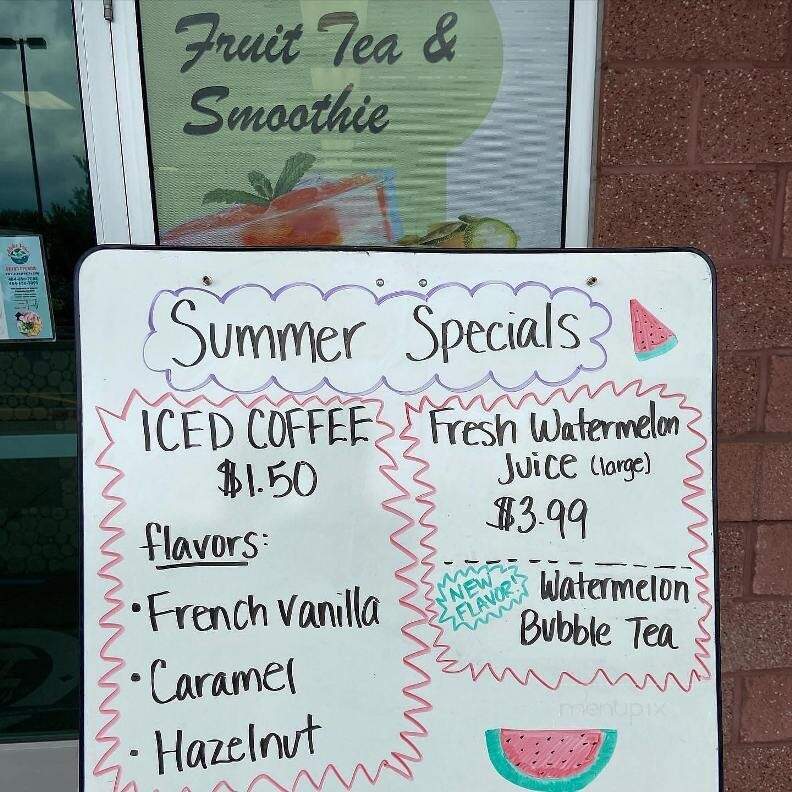 Fruit Tea &
Smoothie
Summer Specials
ICED COFFEE
$1.50
flavors:
• French Vanilla
• Caramel
• Hazelnut
Fresh Watermelon
Juice (large)
$3.99
NEW
FLAVOR!
Watermelon
Bubble Tea
menupix